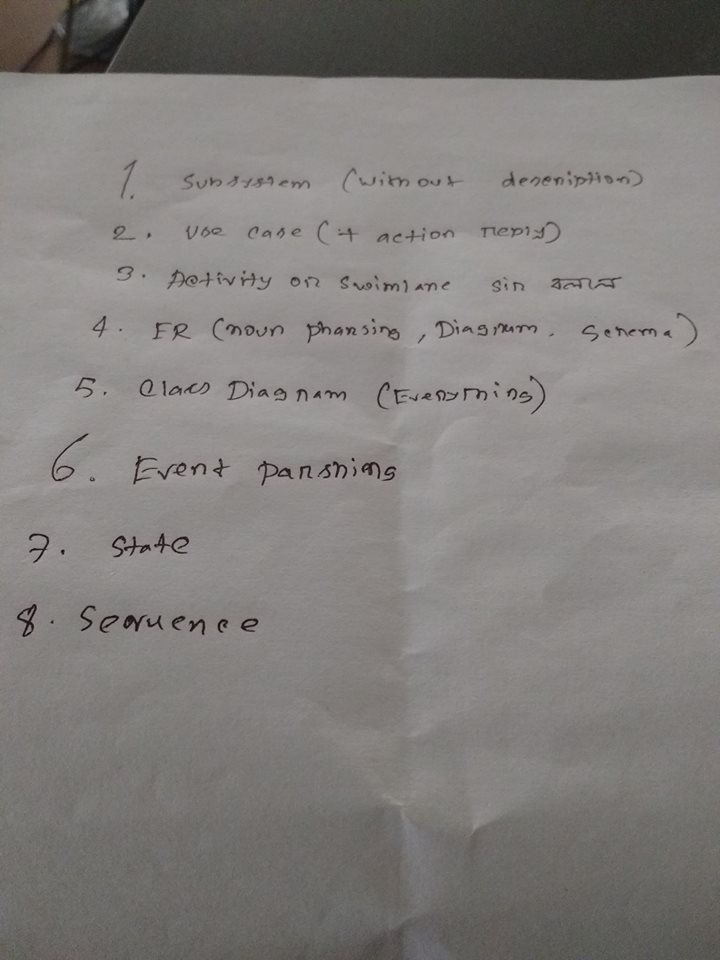 1. Subsystem (without description)
2. Use case (+ action reply)
3. Activity or Swimlane sir বললে
4. ER (noun pharsing, Diagram, Schema)
5. Class Diagram (Everything)
6. Event parshing
7. State
8. Sequence